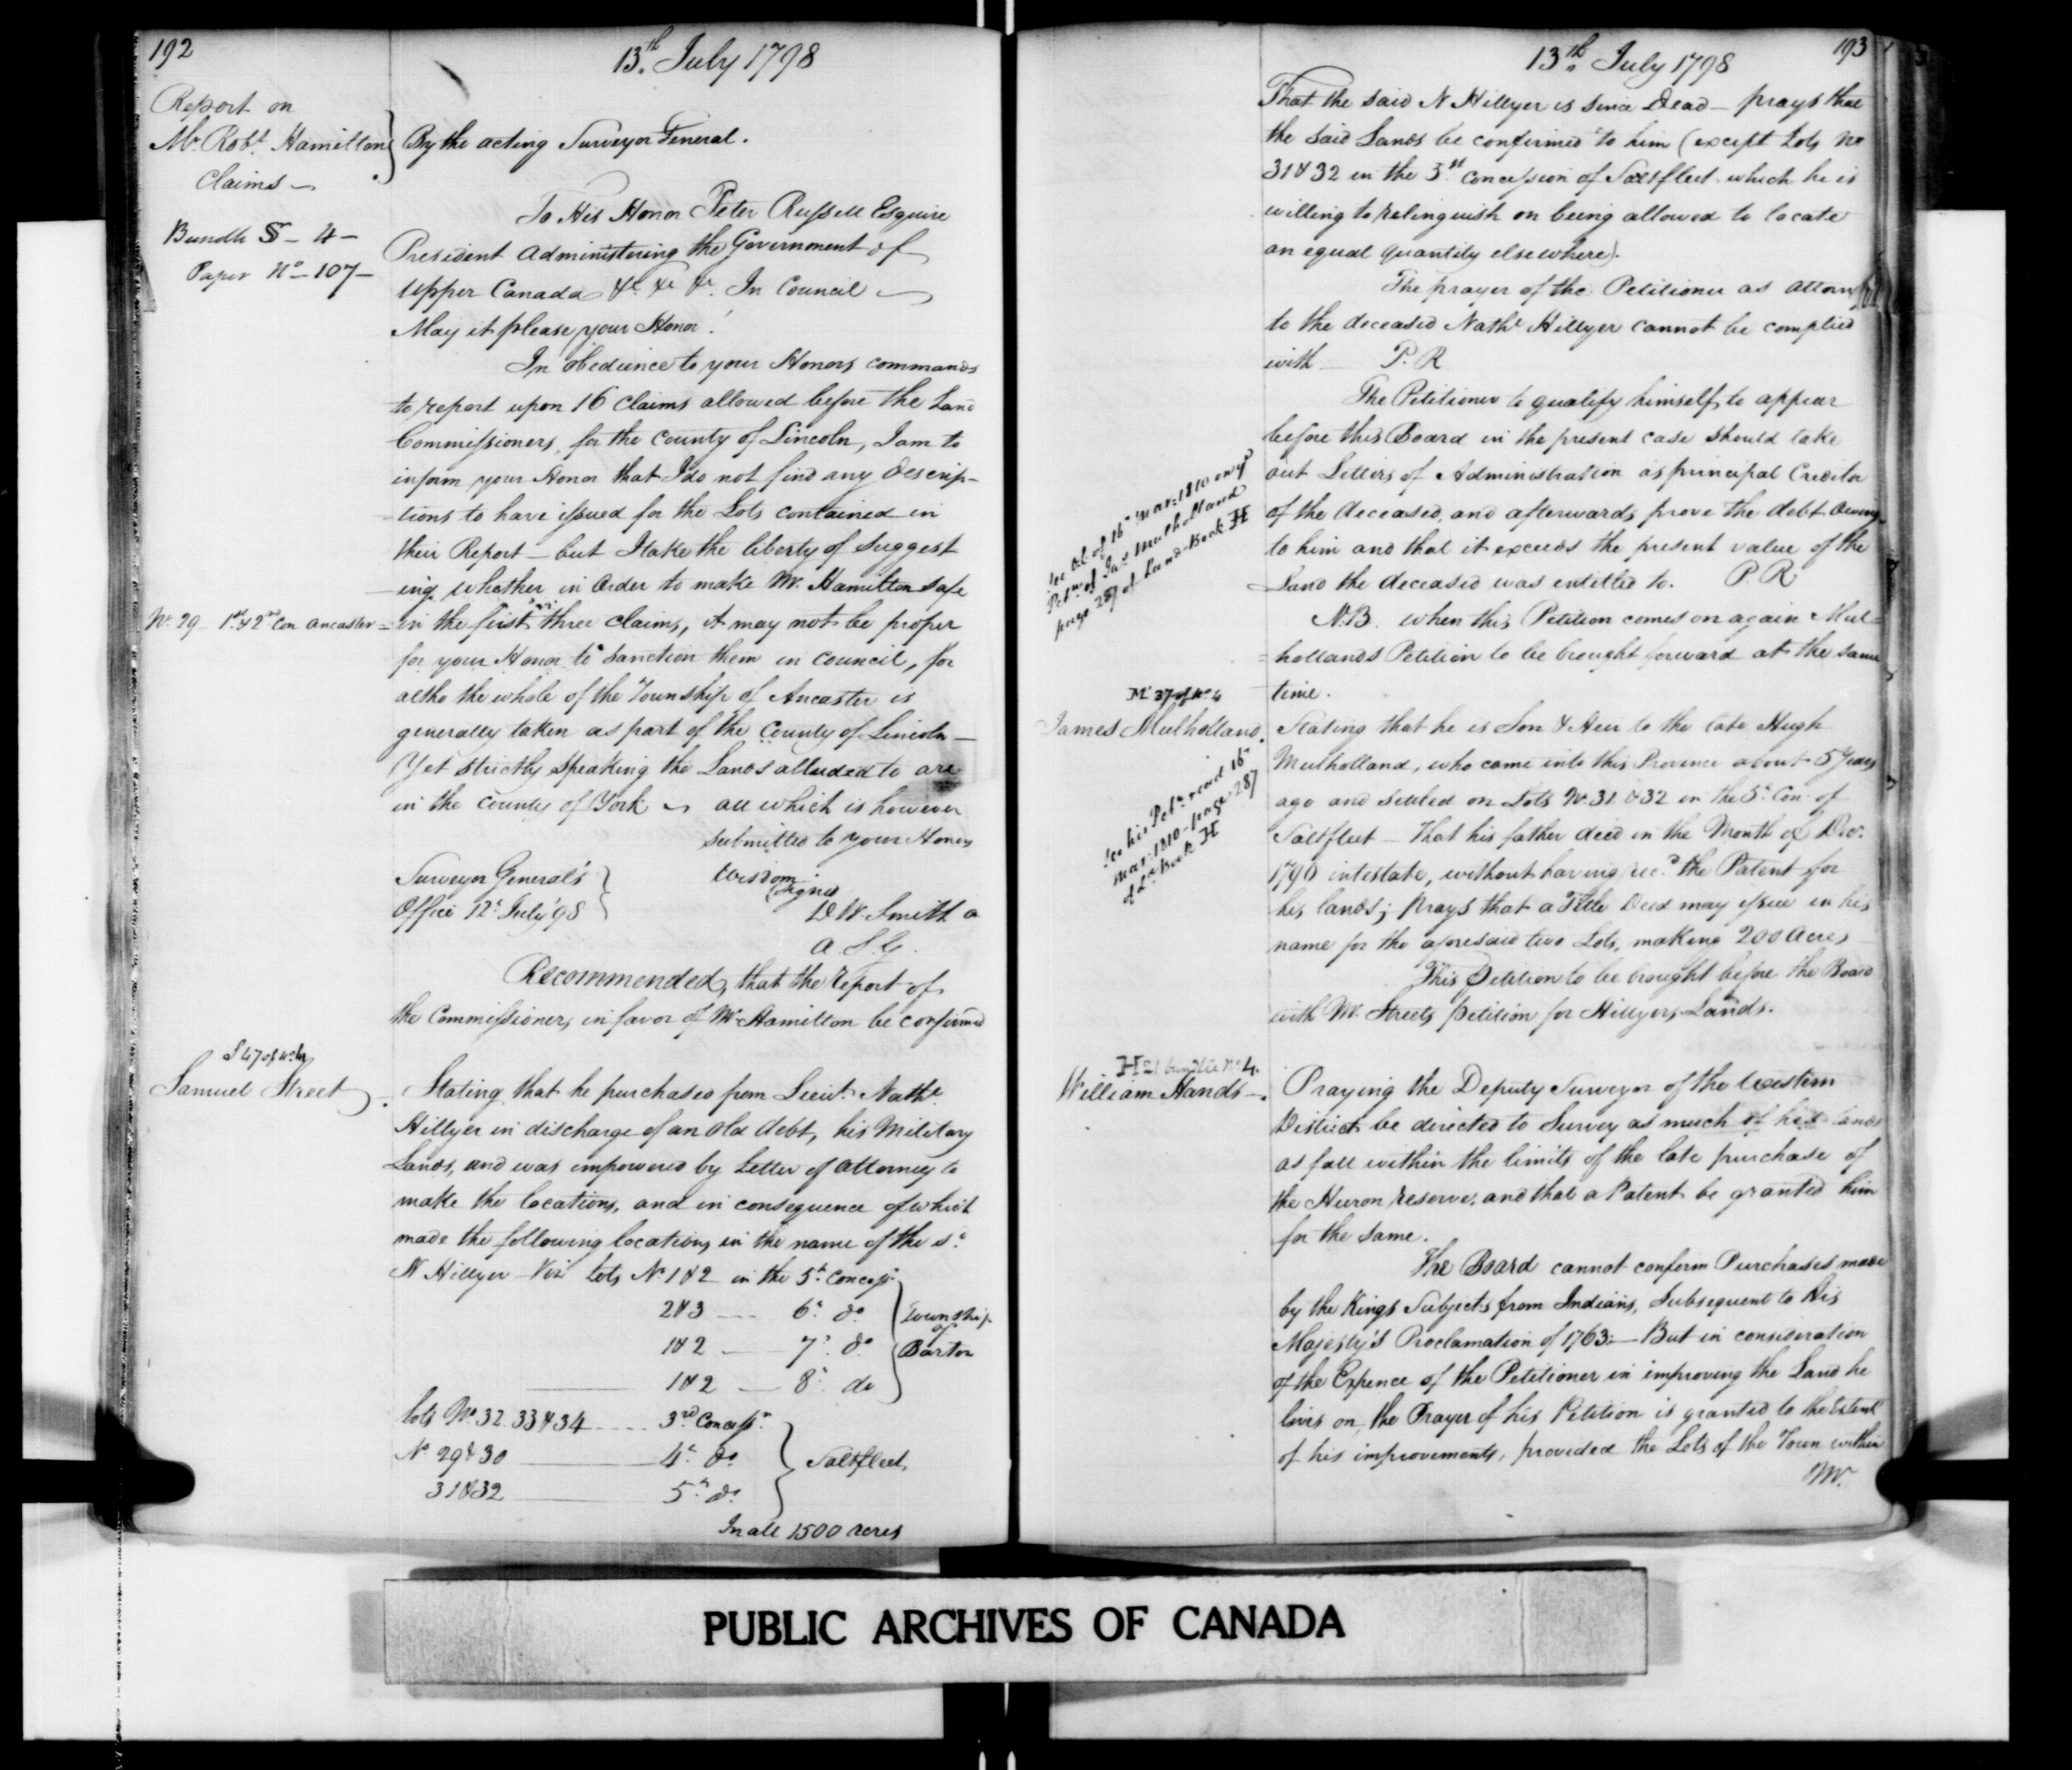 192
13.th July 1798
Report on
Mr. Robt. Hamilton
Claims —
By the acting Surveyor General.
Bundle S – 4 –
Paper No – 107 –
To His Honor Peter Russell Esquire
President Administering the Government of
Upper Canada &c &c &c. In Council —
May it please your Honor!
In obedience to your Honors commands
to report upon 16 Claims allowed before the Land
Commissioners, for the County of Lincoln, I am to
inform your Honor that I do not find any Descrip-
-tions to have issued for the Lots contained in
their Report — but I take the liberty of suggest
-ing whether in Order to make Mr. Hamilton safe
No. 29 – 1st & 2nd Con Ancaster =
in the first three claims, it may not be proper
for your Honor to sanction them in Council, for
altho the whole of the Township of Ancaster is
generally taken as part of the County of Lincoln —
Yet strictly speaking the Lands alluded to are
in the County of York — all which is however
submitted to your Honors
Wisdom
Surveyor General's
Office 12th July '98
(signed
D W. Smith
A S. G.
Recommended, that the report of
the Commissioners in favor of Mr Hamilton be confirmed
S 47 of No 4
Samuel Street
Stating that he purchased from Lieut. Nathl
Hillyer in discharge of an Old debt, his Military
Lands, and was impowered by Letter of Attorney to
make the locations, and in consequence of which
made the following locations in the name of the sd.
N Hillyer Viz Lots No. 1 & 2 in the 5th Concess.
2 & 3 ---- 6th do.
1 & 2 — 7th do
1 & 2 — 8th do
Township
of
Barton
lots No. 32. 33 & 34 .... 3rd Concessn.
No 29 & 30 — 4th do.
31 & 32 — 5th do.
Saltfleet
In all 1500 acres
193
13th July 1798
That the said N Hillyer is since Dead — prays that
the said Lands be confirmed to him (except Lots No
31 & 32 in the 5th Concession of Saltfleet which he is
willing to relinquish on being allowed to locate
an equal quantity elsewhere).
The prayer of the Petitioner as Attorney
to the deceased Nathl Hillyer cannot be complied
with — P. R
The Petitioner to qualify himself to appear
before this Board in the present case should take
out Letters of Administration as principal Creditor
of the deceased, and afterwards prove the debt owing
to him and that it exceeds the present value of the
Land the deceased was entitled to. P R
See O.C. of 16th Mar: 1810 on ye
Petn. of Jas Mulholland
page 287 of Land-Book H
N.B. when this Petition comes on again Mul=
=hollands Petition to be brought forward at the same
time.
M 37 of No 4
James Mulholland.
Stating that he is Son & Heir to the late Hugh
Mulholland, who came into this Province about 5 Years
ago and settled on Lots No. 31 & 32 in the 5th Con: of
Saltfleet — That his father died in the Month of Decr.
1796 intestate, without having recd. the Patent for
his lands; prays that a Title Deed may issue in his
name for the aforesaid two Lots, making 200 Acres
See his Petn. read 16th
Mar: 1810 – page 287
of Ld. Book H
This Petition to be brought before the Board
with Mr. Streets petition for Hillyers Lands.
H 21 bundle No 4.
William Hands —.
Praying the Deputy Surveyor of the Western
District be directed to Survey as much of his lands
as fall within the limits of the late purchase of
the Huron reserve, and that a Patent be granted him
for the same.
The Board cannot confirm Purchases made
by the Kings Subjects from Indians, Subsequent to His
Majesty's Proclamation of 1763: — But in consideration
of the Expence of the Petitioner in improving the Land he
lives on, the Prayer of his Petition is granted to the Extent
of his improvements, provided the Lots of the Town within
Mr.
PUBLIC ARCHIVES OF CANADA